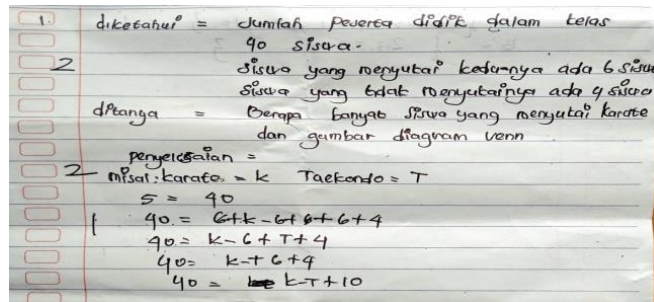 1. diketahui = Jumlah peserta didik dalam kelas
40 siswa.
2 siswa yang menyukai keduanya ada 6 siswa
siswa yang tidak menyukainya ada 4 siswa
ditanya = Berapa banyak siswa yang menyukai karate
dan gambar diagram venn
penyelesaian =
2 misal: karate = k Taekondo = T
S = 40
1 40 = 6+k-6+6+6+4
40 = k-6+T+4
40 = k-T6+4
40 = k-T+10